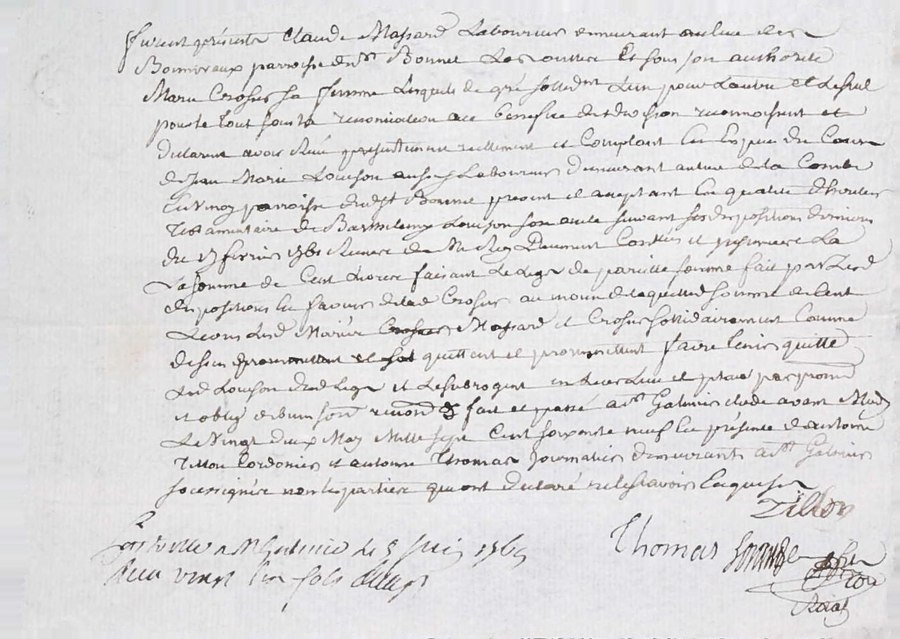 furent présents Claude Massard Laboureur demeurant au lieu des
Bonnevaux parroisse de St Bonnet Les oulles Et sous son authorité
Marie Crosus sa femme Lesquels de gré sollident L'un pour Lautre et Le seul
pour le tout sous la renonciation au benefice de division reconnoissent et
déclarent avoir Reçu présentement réellement et Comptant En Espece du Cours
de Jean Marie Louison aussy Laboureur demeurant au lieu de la Combe
parroisse dudt St Bonnet présent et acceptant En qualité d'héritier
Testamentaire de Barthelemy Louison son oncle suivant ses dispositions dernieres
du 17 fevrier 1761 Receu de Me Rey Dument Controllé et insinuée La
La somme de Cent Livres faisant Le Legs de pareille somme fait par Led
dispositions En faveur de lad Crosus au moien de laquelle somme de Cent
Livres Lesd Mariés Massard et Crosus sollidairement Comme
dessus quittent et promettent faire tenir quitte
Led Louison dud Legs et Le subrogent en Leur Lieu et place par promesse
et oblig de biens soum renond & fait et passé a St Galmier Etude avant Midy
Le Vingt deux May Mille sept Cent soixante neuf En présence de Antoine
Tillon Cordonier et antoine Thomas Journalier demeurants a St Galmier
soussignés non les parties qui ont déclaré ne le scavoir Enquises
Tillon
Thomas
Controllé a St Galmier le 5 Juin 1769
Reçu vingt un sols